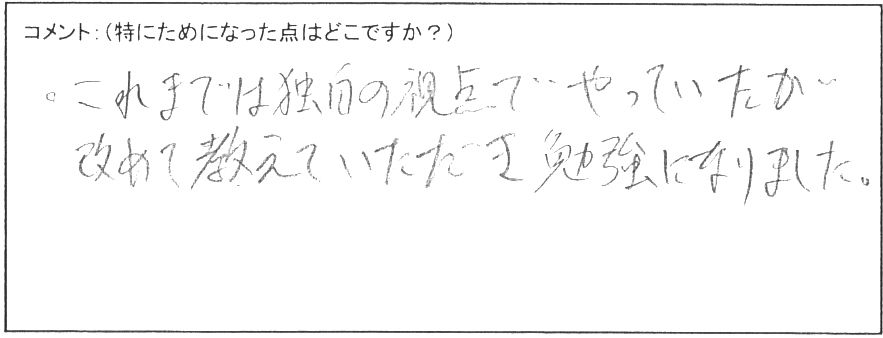 コメント:(特にためになった点はどこですか？)
。これまでは独自の視点でやっていたが
改めて教えていただき勉強になりました。